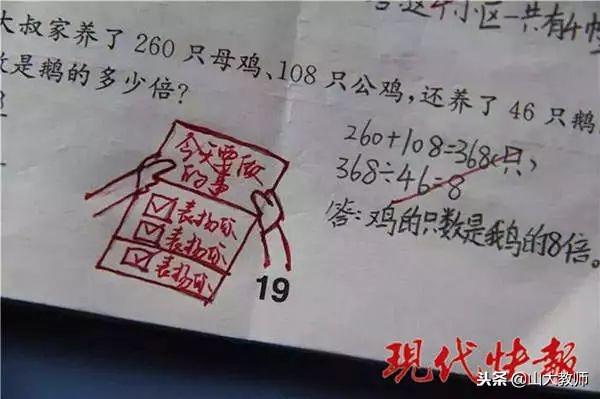 这个小区一共有4幢
大叔家养了 260 只母鸡、108 只公鸡，还养了 46 只鹅
数是鹅的多少倍？
260+108=368(只)
368÷46=8
答：鸡的只数是鹅的8倍。
今天要做
的事
表扬你
表扬你
表扬你
19
现代快报
头条 @山大教师